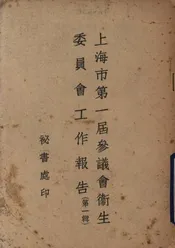 上海市第一屆參議會衞生
委員會工作報告(第一輯)
祕書處印